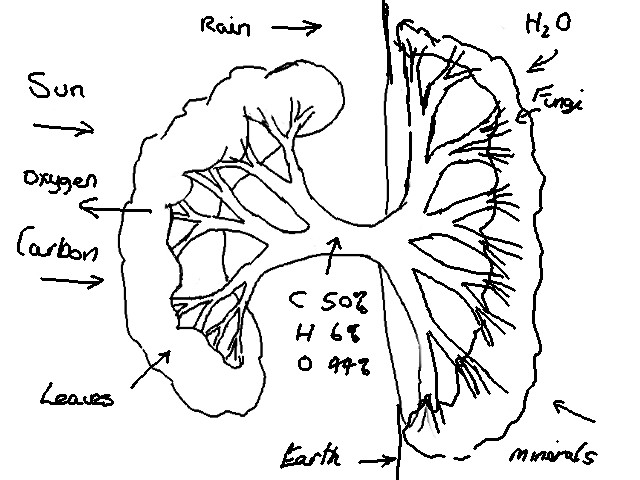 Rain
H2O
Sun
Fungi
Oxygen
Carbon
C 50%
H 6%
O 44%
Leaves
Earth
minerals